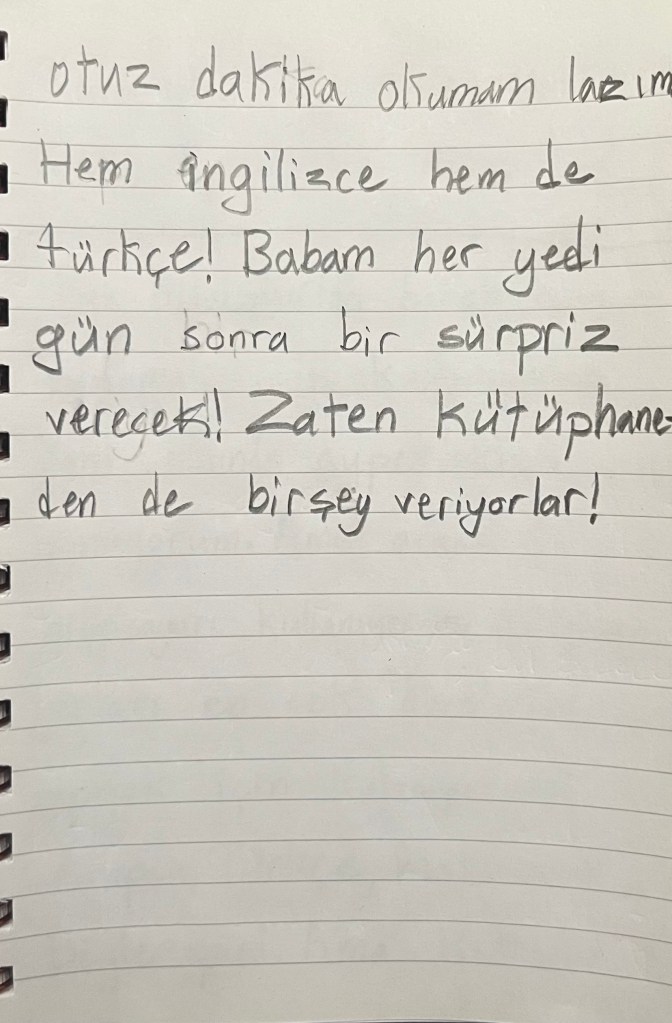 otuz dakika okumam lazım
Hem ingilizce hem de
türkçe! Babam her yedi
gün sonra bir sürpriz
vereçek! Zaten kütüphane-
den de birşey veriyorlar!